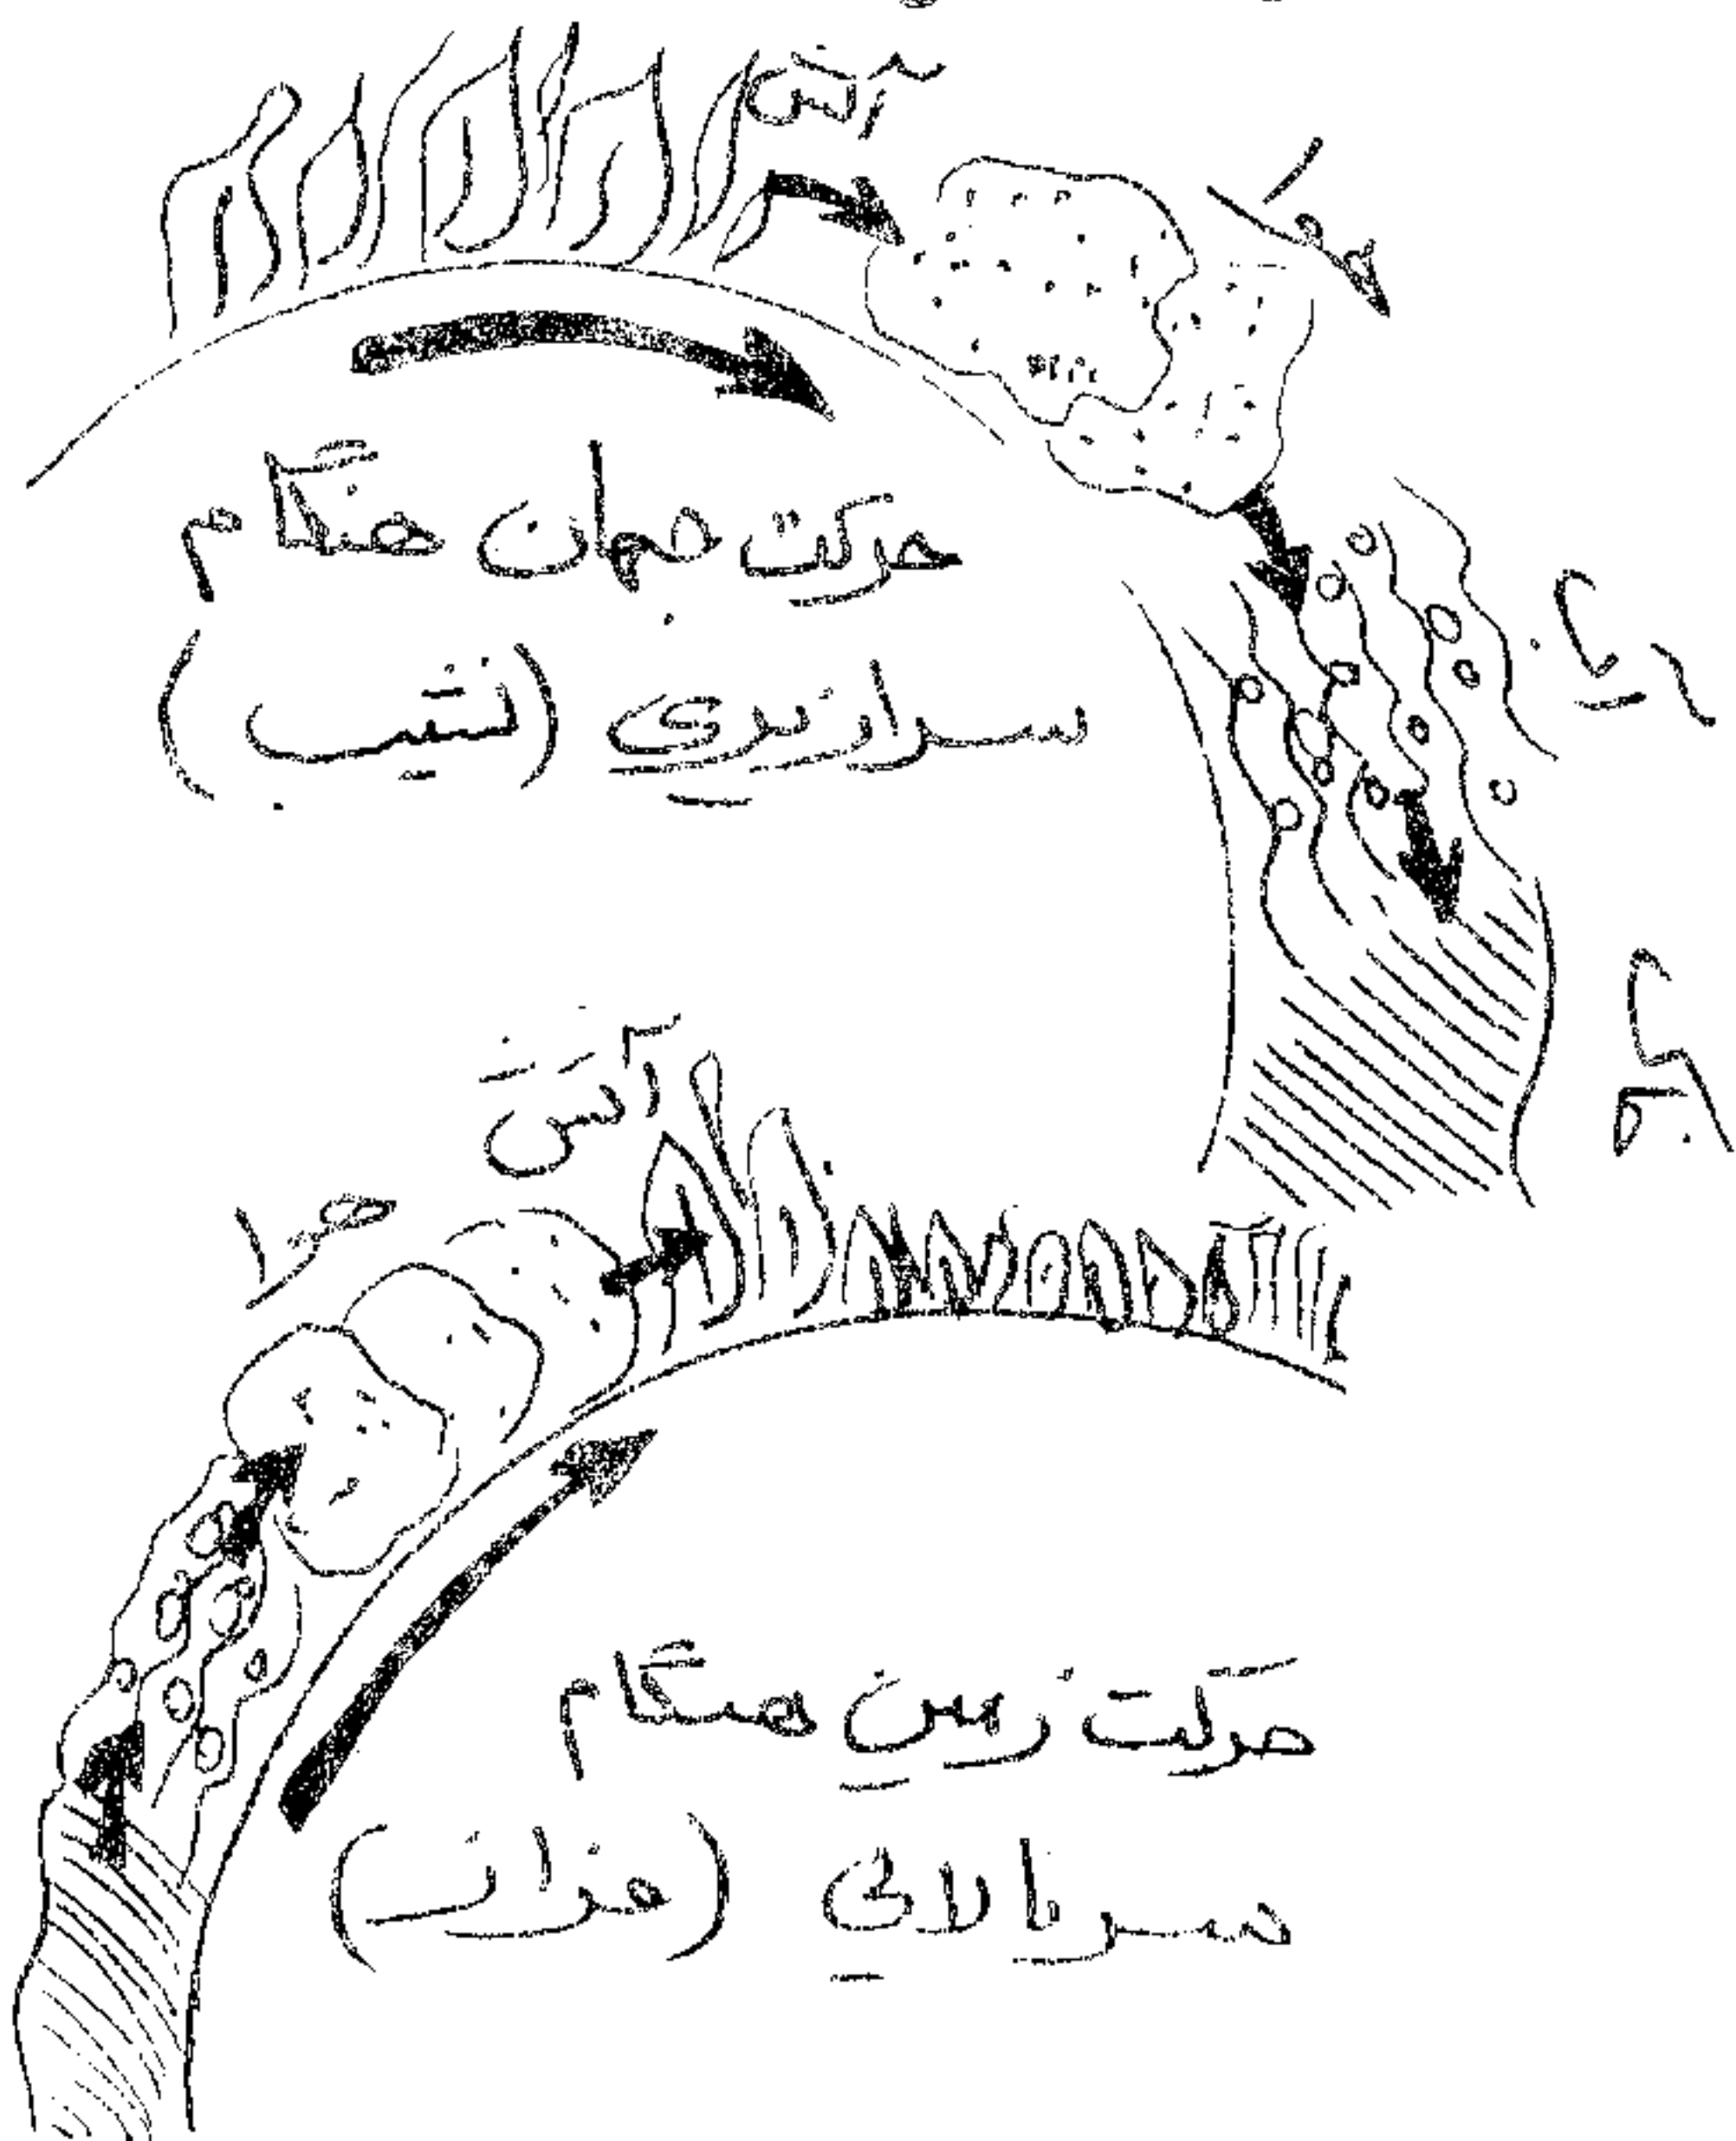 آتش
هوا
حرکت جهان هنگام
سرازیری (نشیب)
آتش
هوا
حرکت زمین هنگام
سربالائی (فراز)